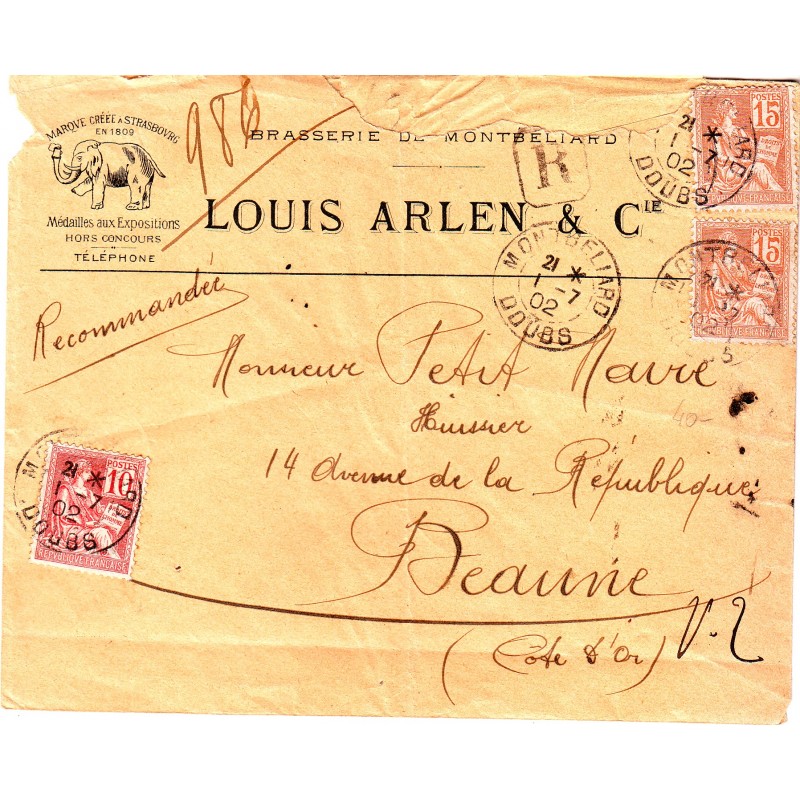 MARQVE CRÉÉE A STRASBOVRG
EN 1809
Médailles aux Expositions
HORS CONCOURS
TÉLÉPHONE
986
BRASSERIE DE MONTBÉLIARD
R
LOUIS ARLEN & CIE
POSTES
15
REPVBLIQVE FRANÇAISE
ARD
21 *
1 -7
02
DOUBS
POSTES
15
REPVBLIQVE FRANÇAISE
MONTB
21 *
-7
02
MONTBELIARD
21 *
1 -7
02
DOUBS
Recommandée
Monsieur Petit Maire
Huissier
40-
14 Avenue de la République
Beaune
(Côte d'Or)
V.2
POSTES
10
REPVBLIQVE FRANÇAISE
MO
21 *
1 -7
02
DOUBS